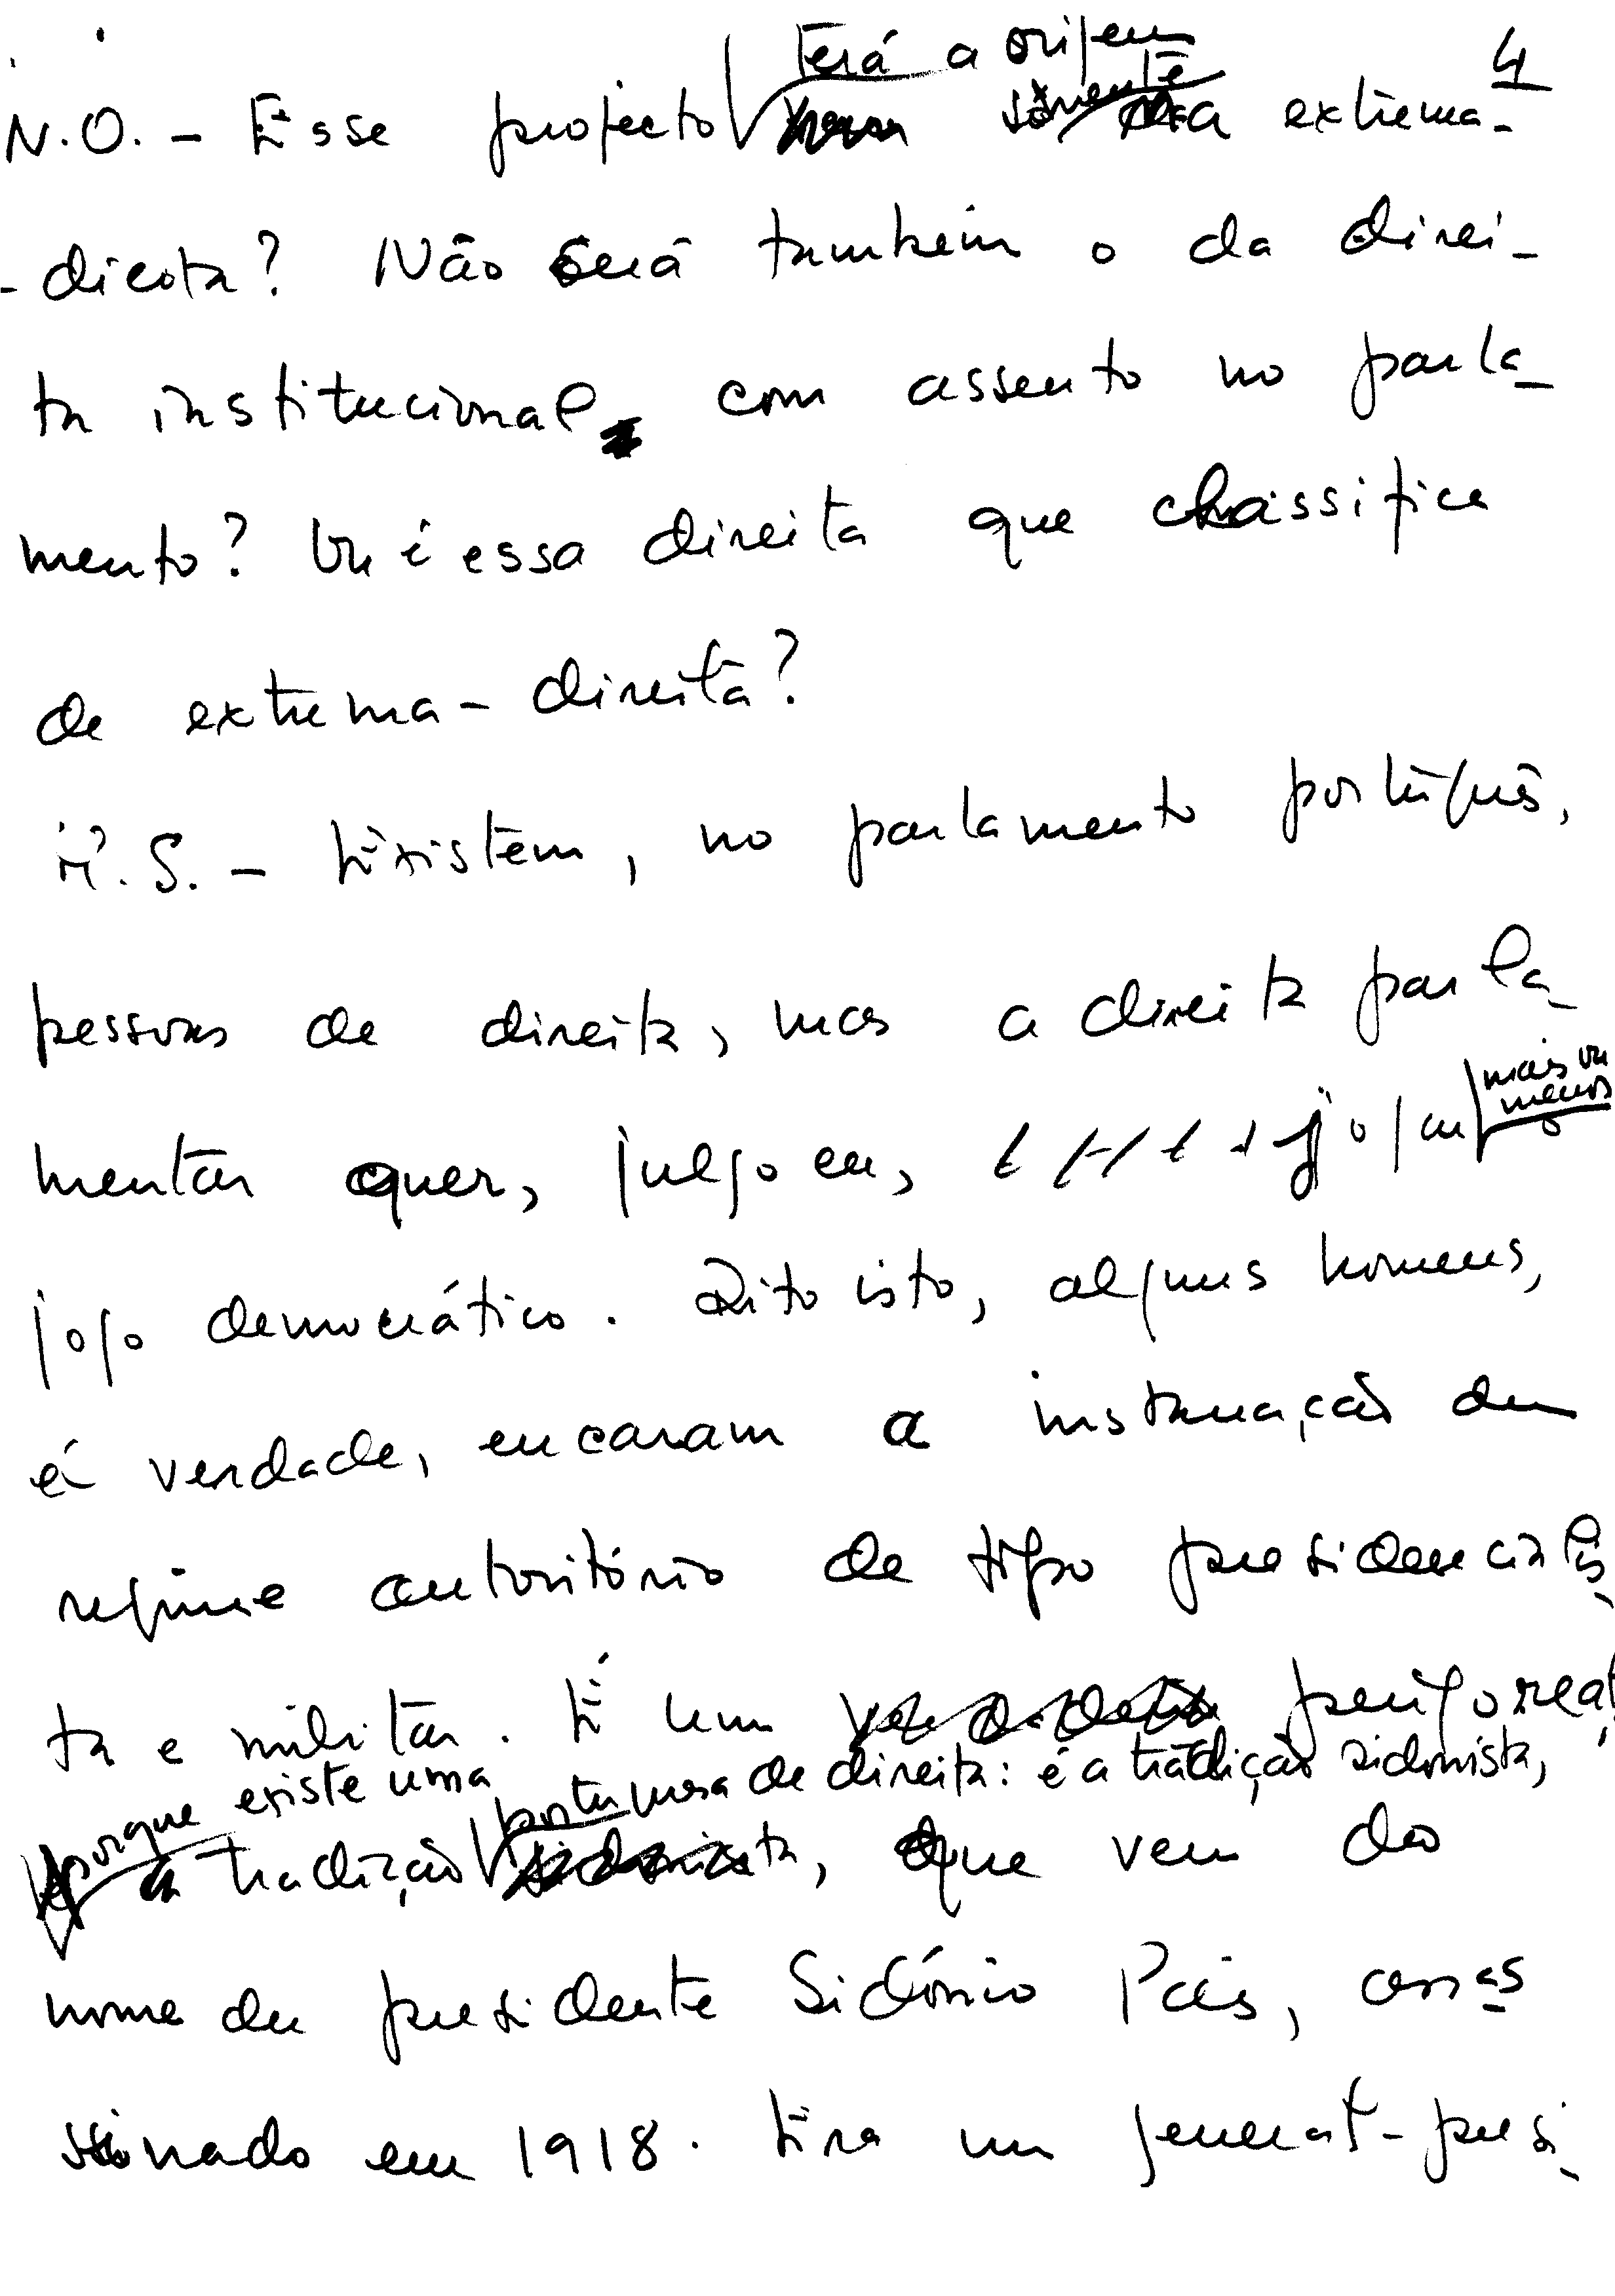 4
terá a origem
N.O. - Esse projecto somente na extrema-
-direita? Não será também o da direi-
ta institucional com assento no parla-
mento? Ou é essa direita que classifica
de extrema-direita?
M.S. - Existem, no parlamento português,
pessoas de direita, mas a direita parla-
mais ou menos
mentar quer, julgo eu, jogar o
jogo democrático. Dito isto, alguns homens,
é verdade, encaram a instauração du
regime autoritário de tipo presidencialis-
ta e militar. É um perigo real,
porque existe uma portuguesa de direita: é a tradição sidonista,
tradição que vem do
nome du presidente Sidónio Pais, assas-
sinado em 1918. Era um general-presi-